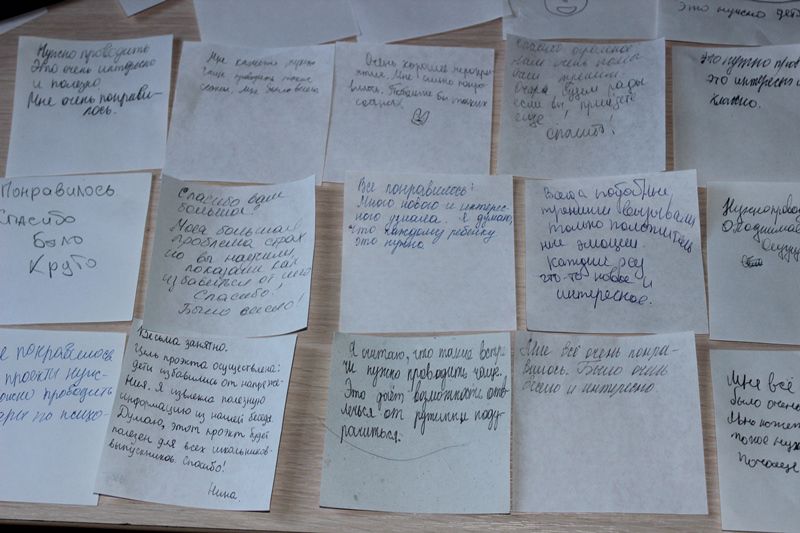 это нужно дет
Нужно проводить
Это очень интересно
и полезно
Мне очень понрави-
лось.
Мне кажется нужно
чаще проводить
мне было весело
Очень хорошее меропри-
ятие. Мне сильно понра-
вилось. Побольше бы таких
Спасибо огромное
нам очень понр
Очень будем рады
если вы приедете
ещё
Спасибо!
Это нужно пров
это интересно и
классно.
Понравилось
Спасибо
Было
Круто
Спасибо вам
большое!
Моя большая
проблема страх
но вы научили,
показали как
избавиться от него
Спасибо!
Было весело!
Все понравилось!
Много нового и интерес-
ного узнала. Я думаю,
что каждому ребёнку
это нужно
Всегда подобные
тренинги вызывали
только положитель
ные эмоции.
Каждый раз
что-то новое и
интересное.
Нужно провод
е понравилось
проекты нуж-
проводить
по психо-
Весьма занятно.
Цель проэкта осуществлена:
дети избавились от напряже-
ния. Я извлекла полезную
информацию из нашей беседы.
Думаю, этот проэкт будет
полезен для всех школьников-
выпускников. Спасибо!
Нина.
Я считаю, что такие встре
чи нужно проводить чаще.
Это даёт возможность отв
лечься от рутины и поду-
рачиться.
Мне всё очень понра-
вилось. Было очень
весело и интересно.
Мне всё
было очень
Мне кажет
такое нуж
почаще